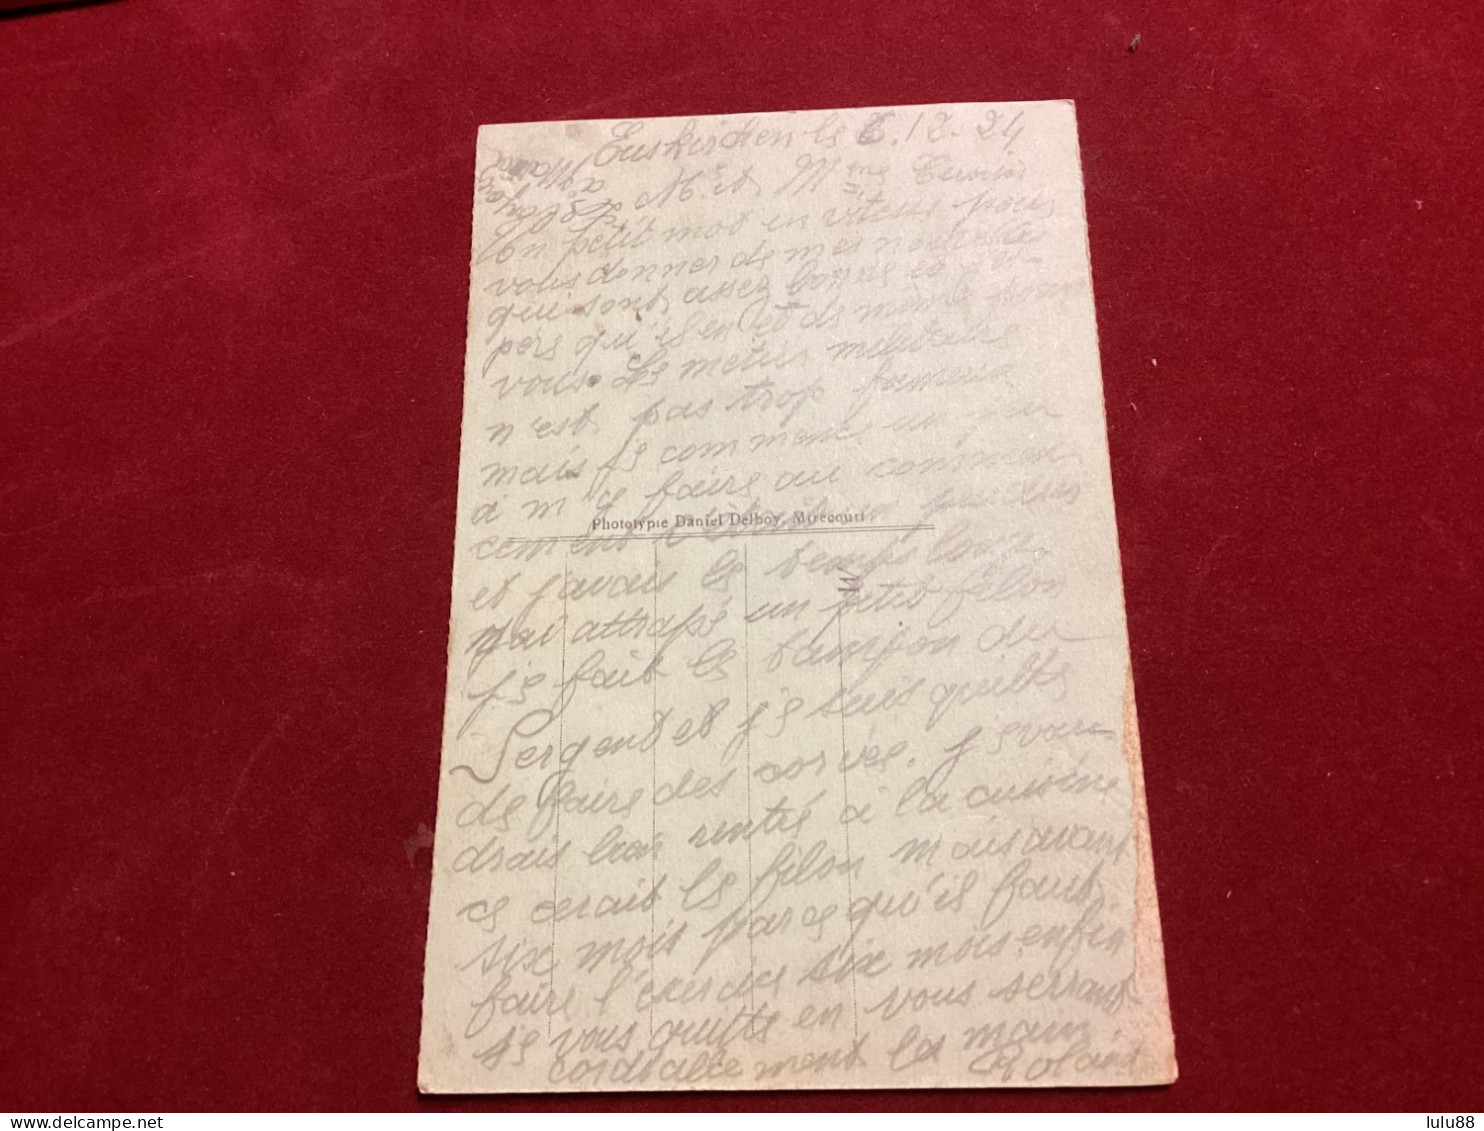 Euskirchen le 6.12.24
M. et Mme
Un petit mot en vitesse pour
vous donner de mes nouvelles
qui sont assez bonne et j'es-
père qu'il en et de même pour
vous. Le métier militaire
n'est pas trop fameux
mais je commence un peu
à m'y faire au commen
cement c'était un peu dur
et j'avais le temps long
j'ai attrapé un petit filon
je fait le tampon du
Sergent et je suis quitte
de faire des corvée. je vou-
drais bien rentré à la cuisine
ce cerait le filon mais avant
six mois parce qu'il faut
faire l'exercice six mois enfin
je vous quitte en vous serrant
cordiallement les main
Roland
Phototypie Daniel Delboy, Mirecourt
lulu88